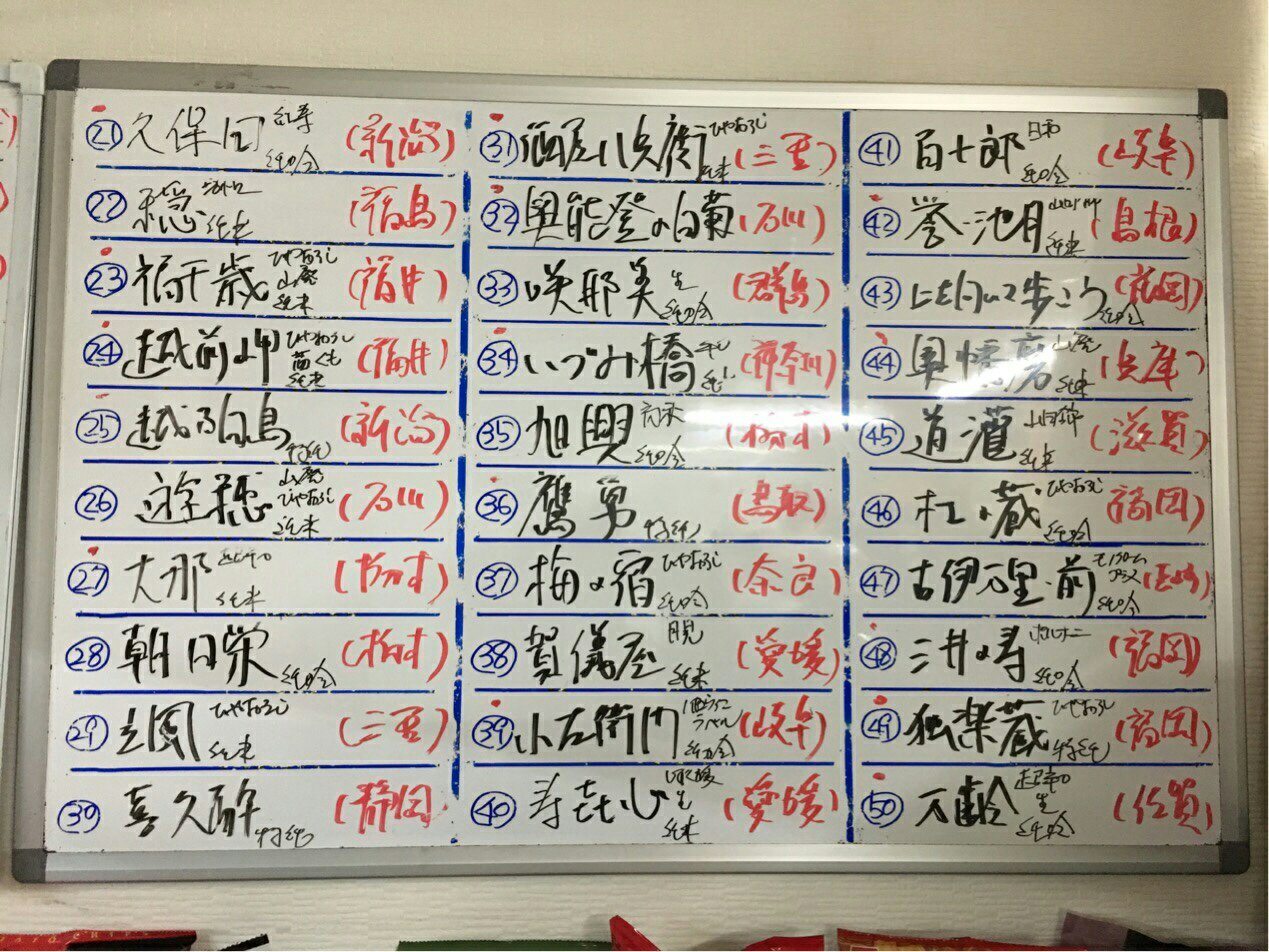 ㉑ 久保田 紅寿 純吟 (新潟)
㉒ 穏 純米 (福島)
㉓ 福千歳 ひやおろし 山廃 純米 (福井)
㉔ 越前岬 ひやおろし 純米 (福井)
㉕ 越乃白鳥 特純 (新潟)
㉖ 遊穂 山廃 ひやおろし 純米 (石川)
㉗ 大那 純米 (栃木)
㉘ 朝日栄 純吟 (栃木)
㉙ ひやおろし 純米 (三重)
㉚ 喜久酔 特純 (静岡)
㉛ 酒屋八兵衛 ひやおろし 純米 (三重)
㉜ 奥能登の白菊 (石川)
㉝ 咲耶美 生 純吟 (群馬)
㉞ いづみ橋 (神奈川)
㉟ 旭興 純吟 (栃木)
㊱ 鷹勇 特純 (鳥取)
㊲ 梅乃宿 ひやおろし 純吟 (奈良)
㊳ 賀儀屋 純米 (愛媛)
㊴ 小左衛門 純吟 (岐阜)
㊵ 寿喜心 生 純米 (愛媛)
㊶ 百十郎 日和 純吟 (岐阜)
㊷ 誉池月 純米 (島根)
㊸ 上を向いて歩こう 純吟 (福岡)
㊹ 奥播磨 山廃 純米 (兵庫)
㊺ 道灌 純米 (滋賀)
㊻ 杜の蔵 ひやおろし 純吟 (福岡)
㊼ 古伊万里 前 純吟
㊽ 三井の寿 純吟 (福岡)
㊾ 独楽蔵 ひやおろし 特純 (福岡)
㊿ 万齢 超辛口 生 純吟 (佐賀)